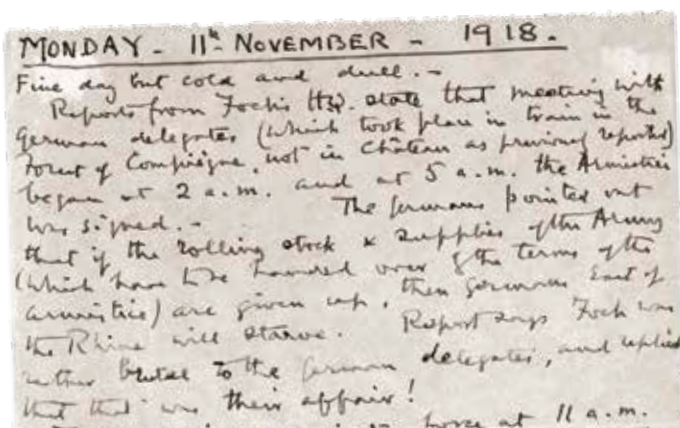 MONDAY - 11th NOVEMBER - 1918.
Fine day but cold and dull. -
Reports from Foch's H.Q. state that meeting with
German delegates (which took place in train in the
Forest of Compiègne, not in Château as previously reported)
began at 2 a.m. and at 5 a.m. the Armistice
was signed. - The Germans pointed out
that if the rolling stock & supplies of the Army
(which have to be handed over by the terms of the
armistice) are given up, then Germans East of
the Rhine will starve. Report says Foch was
rather brutal to the German delegates, and replied
that that was their affair!
at 11 a.m.